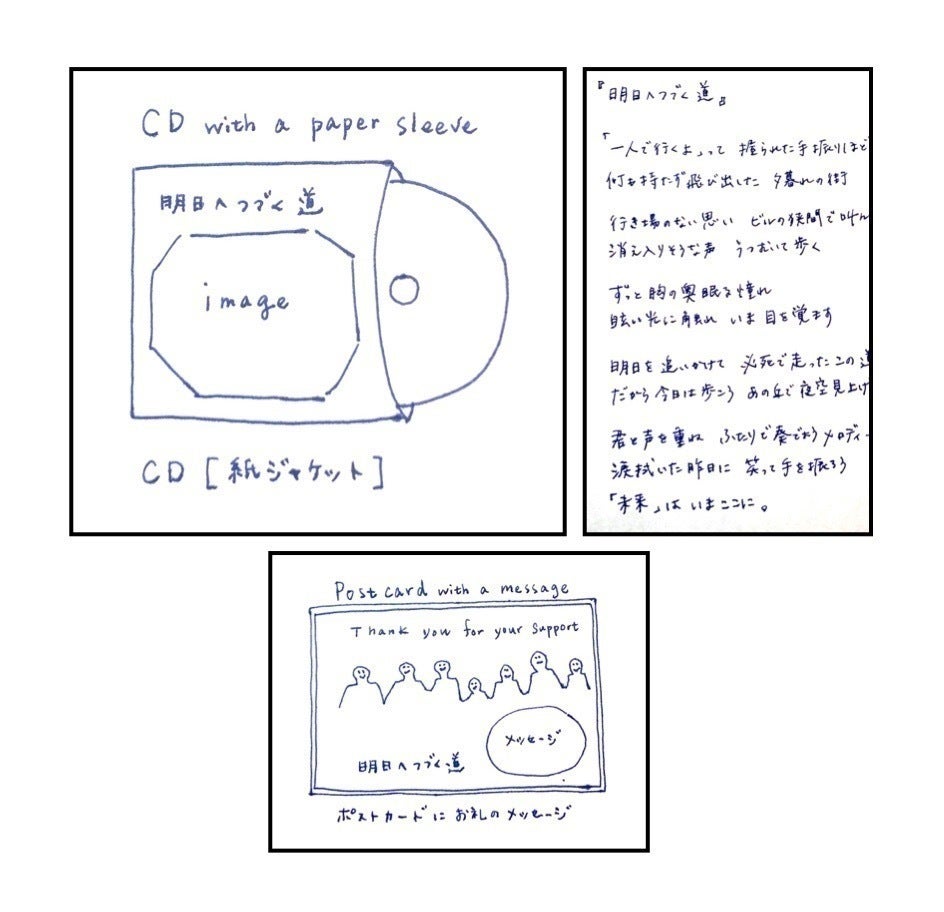 CD with a paper sleeve
明日へつづく道
image
CD [紙ジャケット]
『明日へつづく道』
「一人で行くよ」って 握られた手振りほど
何も持たず飛び出した 夕暮れの街
行き場のない思い ビルの狭間で叫ん
消え入りそうな声 うつむいて歩く
ずっと胸の奥眠る憧れ
眩い光に触れ いま 目を覚ます
明日を追いかけて 必死で走ったこの道
だから今日は歩こう あの丘で夜空見上げ
君と声を重ね ふたりで奏でろうメロディー
涙拭いた昨日に 笑って手を振ろう
「未来」は いまここに。
Post card with a message
Thank you for your support
メッセージ
明日へつづく道
ポストカードに お礼の メッセージ